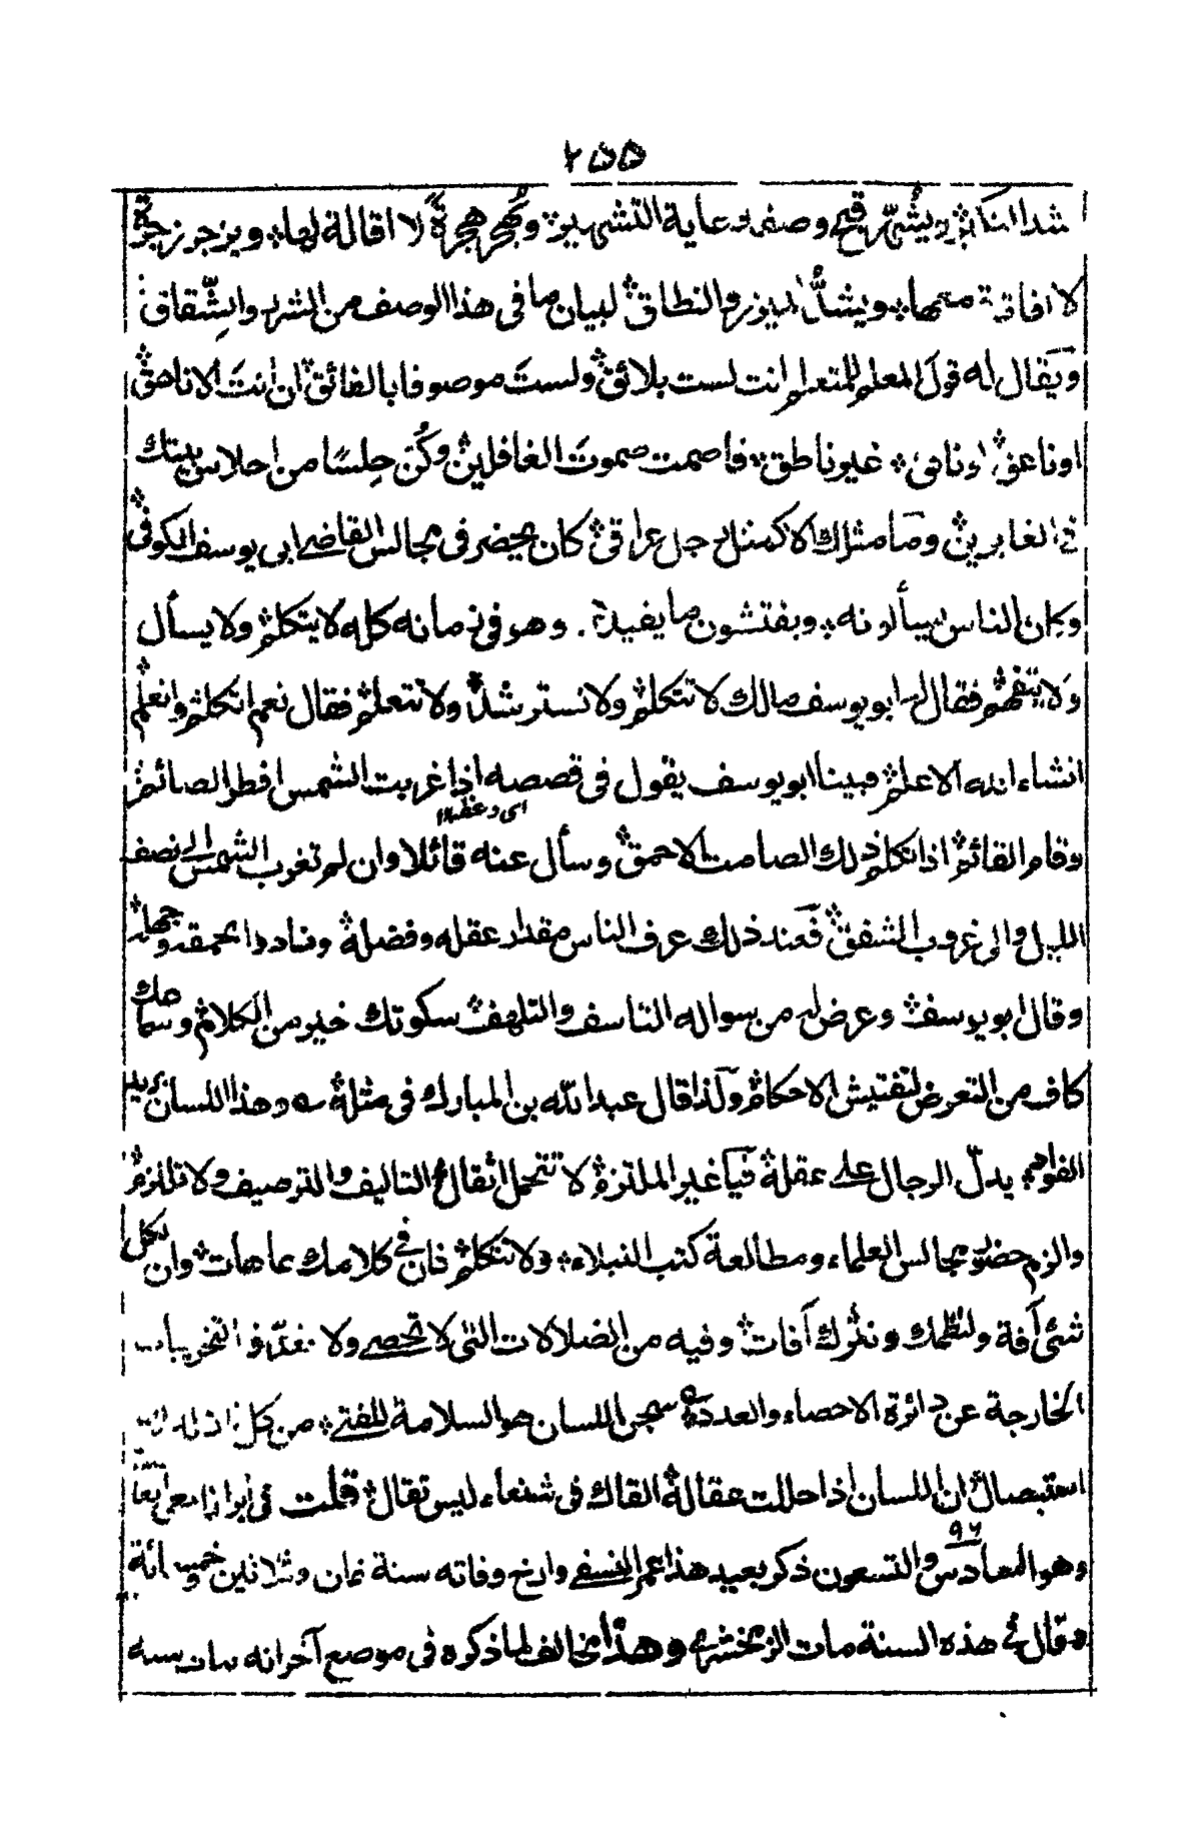 ٢٥٥
ويشهّر وصفى دعاية التشهير ويُهجر هجرةً لا اقالة لها ويزجر زجرة
لا افاقة معها ويشدُّ الميزر والنطاق لبيان ما فى هذا الوصف من الشر والشِّقاق
ويقال له قولَ المعلم للمتعلم انت لست بلائق ولستَ موصوفا بالفائق ان انتَ الا ناهق
اوناعق غير ناطق فاصمت صموتَ الغافلين وكُن حِلسًا من احلاس بيتك
فى الغابرين وما مثلك الا كمثل رجل عراقى كان يحضر فى مجالس القاضے ابى يوسف الكوفى
وكان الناس يسألونه ويفتشون ما يفيده . وهو فى زمانه كله لا يتكلم ولا يسأل
ولا يتفهم فقال له ابو يوسف مالك لا تتكلم ولا تسترشد ولا تتعلم فقال نعم اتكلم واتعلم
انشاء الله الاعلم فبينا ابو يوسف يقول فى قصصه اذا غربت الشمس افطر الصائم
اى وعظه ١٢
وقام القائم اذا تكلم ذلك الصامت الاحمق وسأل عنه قائلا وان لم تغرب الشمس الے نصف
الليل والى غروب الشفق فعند ذلك عرف الناس مقدار عقله وفضله ونادوا بحمقه وجهله
وقال ابو يوسف وعرض له من سواله التاسف والتلهف سكوتك خير من الكلام وسماعك
كاف من التعرض لتفتيش الاحكام ولذا قال عبد الله بن المبارك فى مثله ے وهذا اللسان بريد
الفواد يدلّ الرجال علے عقله فيا غير الملتزم لا تتحمل اثقال التاليف والترصيف ولا تلتزم
والزم حضور مجالس العلماء ومطالعة كتب النبلاء ولا تتكلم فان فى كلامك عاهات وان لكل
شئ آفة ولنظمك ونثرك آفات وفيه من الضلالات التى لا تحصے ولا تعد والتخريبات
الخارجة عن دائرة الاحصاء والعدد ے سجن اللسان هو السلامة للفتے من كل نازلة لها
استيصال ان اللسان اذا حللت عقاله القاك فى شنعاء ليس تقال قلت فى ابراز
وهو السادس والتسعون ذكر بعيد هذا عمر النسفے وارخ وفاته سنة ثمان وثلاثين وخمسمائة
٩٦
وقال فى هذه السنة مات الزمخشرے وهذا مخالف لما ذكره فى موضع آخر انه مات سنة